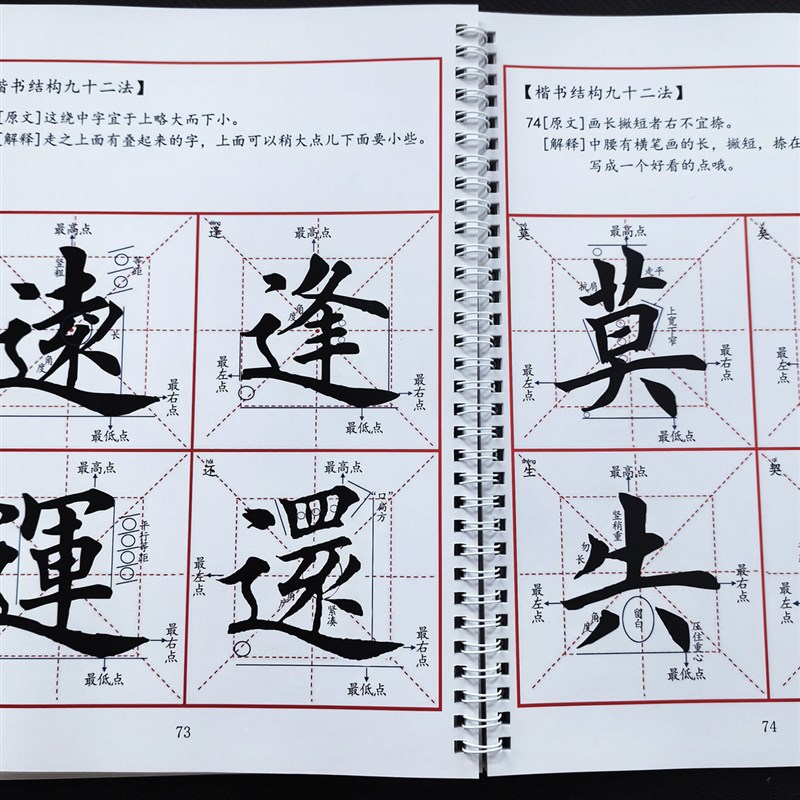 楷书结构九十二法】
[原文]这绕中字宜于上略大而下小。
[解释]走之上面有叠起来的字，上面可以稍大点儿下面要小些。
最高点
等距
竖粗
遠
长
角度
最右点
最低点
逢
最高点
逢
角度
最左点
最右点
最低点
運
最高点
并行等距
最右点
最低点
还
最高点
"口"扁方
還
最左点
紧凑
最右点
最低点
73
【楷书结构九十二法】
74[原文]画长撇短者右不宜捺。
[解释]中腰有横笔画的长，撇短，捺在
写成一个好看的点哦。
莫
最高点
走平
扛肩
上宽下窄
莫
最左点
最右点
最低点
生
最高点
竖稍重
勿长
最左点
最右点
角度
留白
压住重心
最低点
契
74